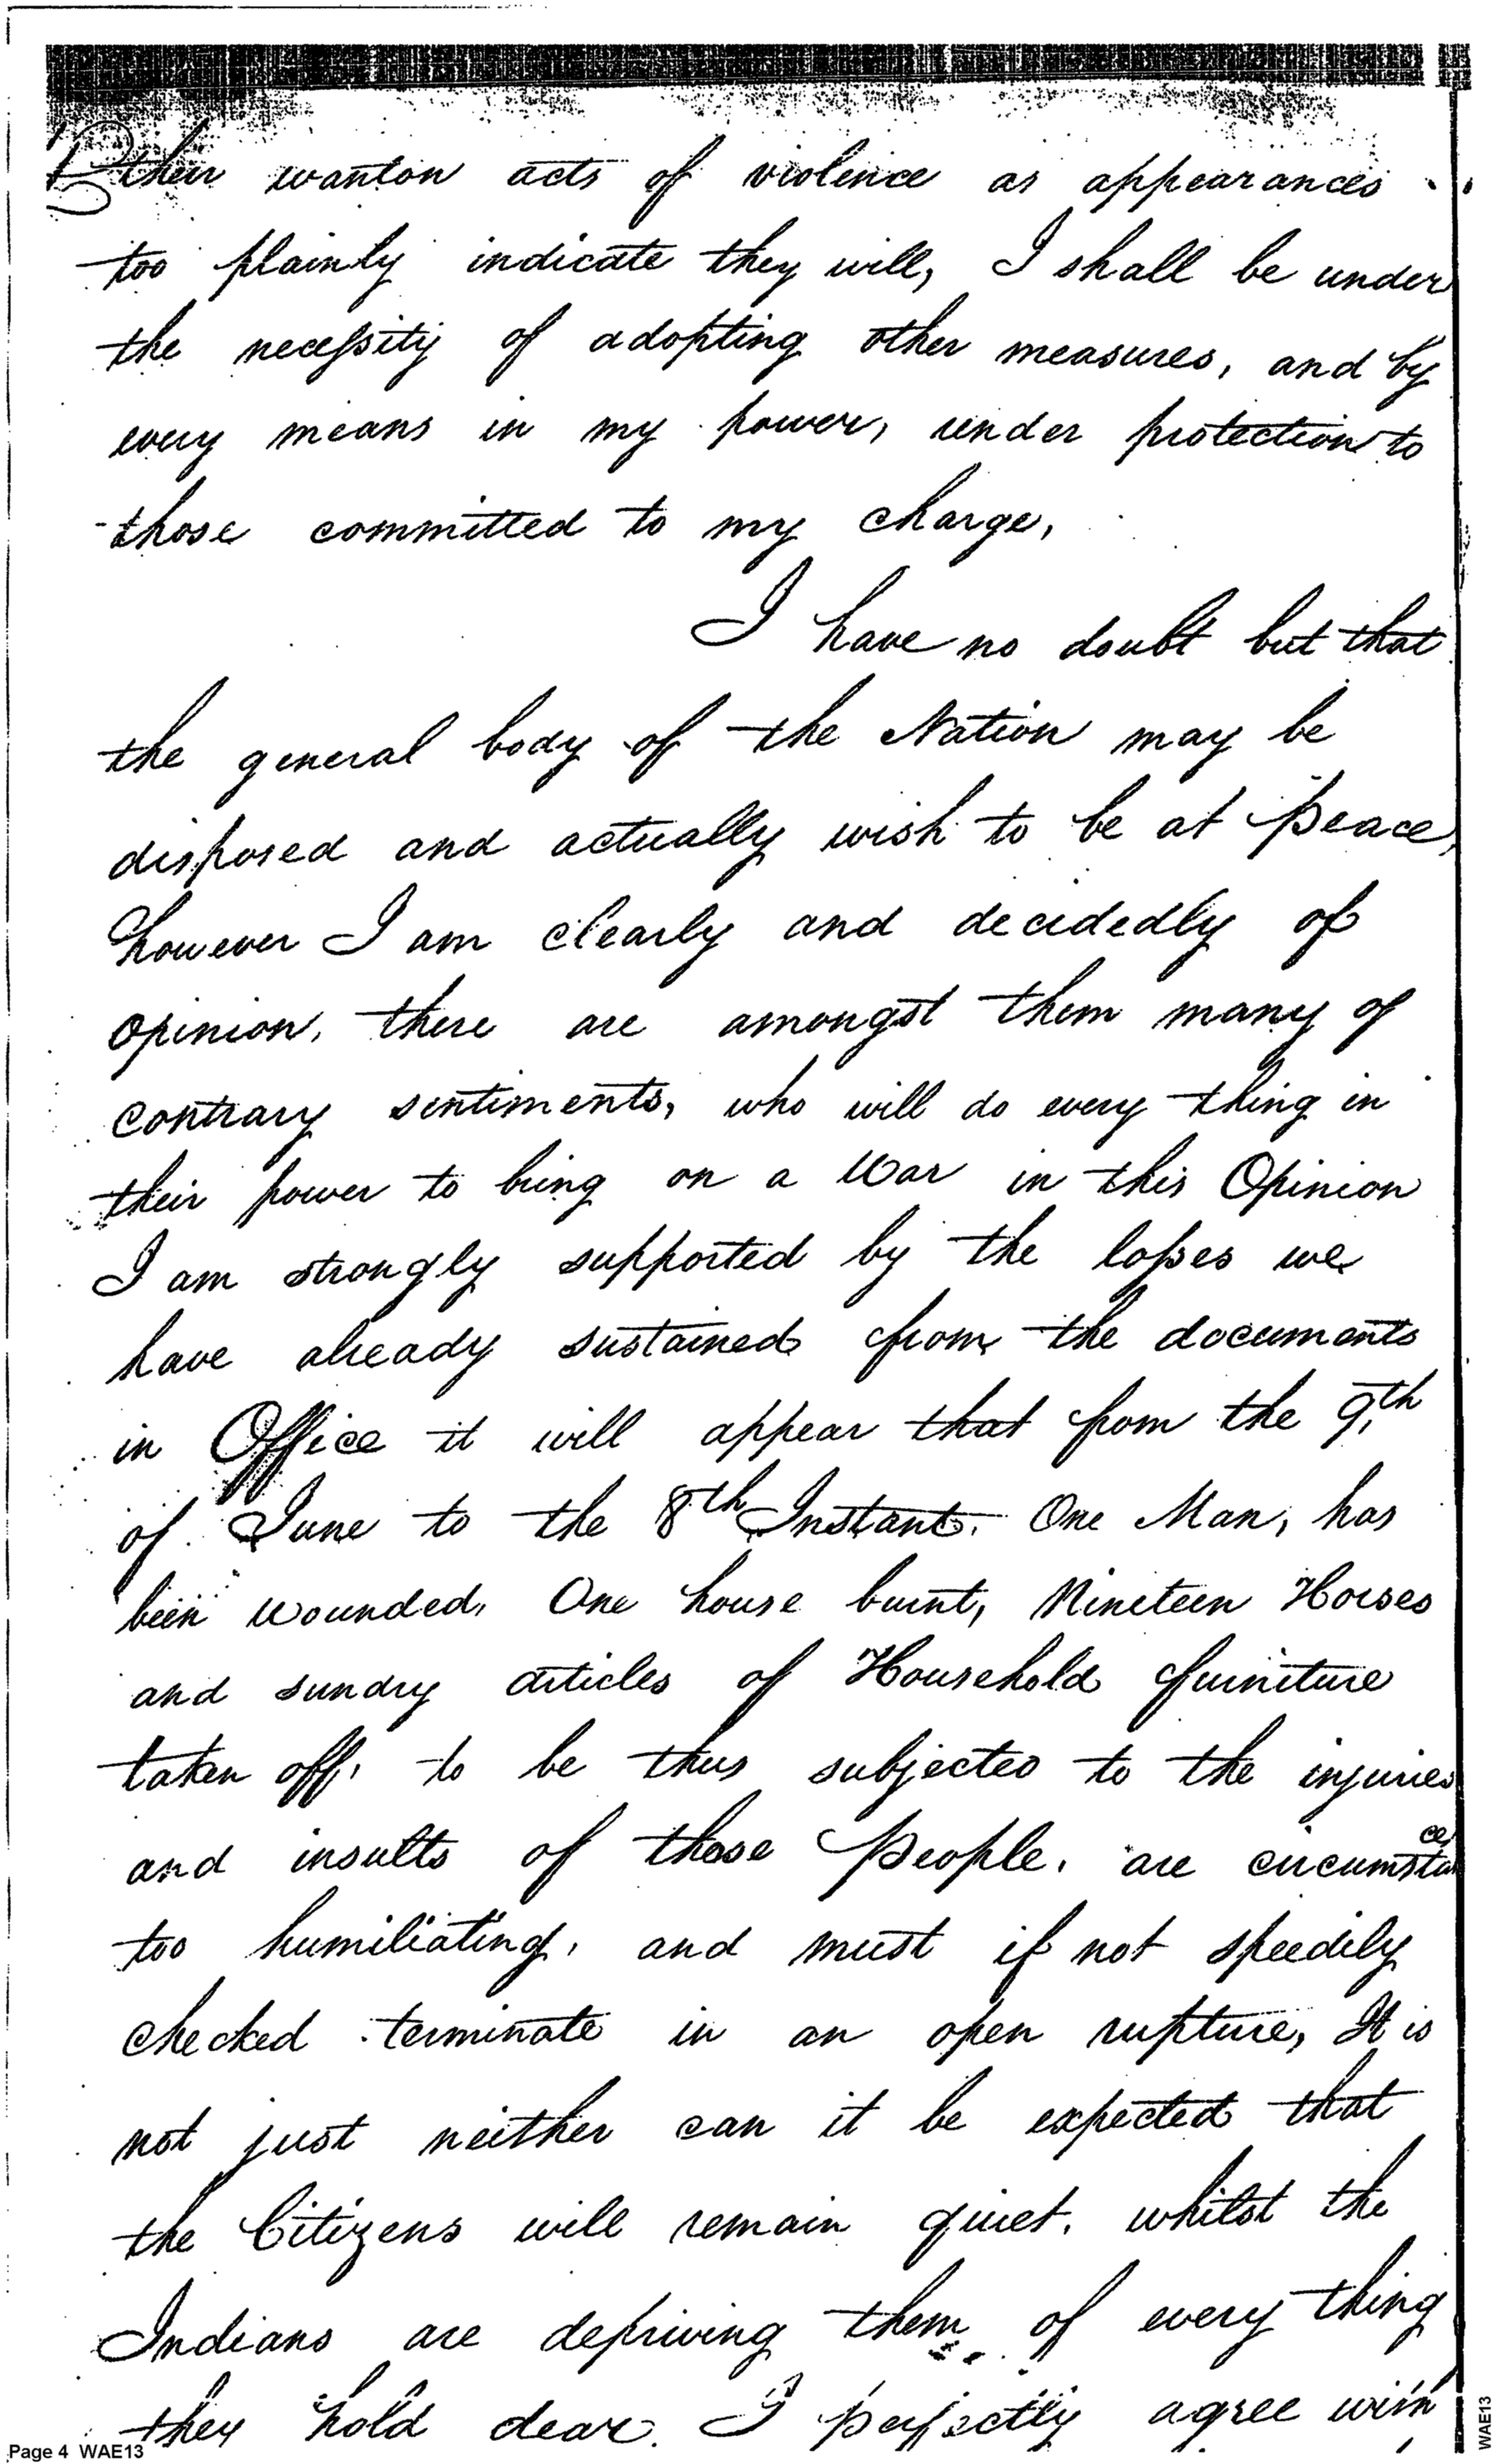 their wanton acts of violence as appearances
too plainly indicate they will, I shall be under
the necessity of adopting other measures, and by
every means in my power, render protection to
those committed to my charge,
I have no doubt but that
the general body of the Nation may be
disposed and actually wish to be at peace,
however I am clearly and decidedly of
opinion, there are amongst them many of
contrary sentiments, who will do every thing in
their power to bring on a War in this Opinion
I am strongly supported by the losses we
have already sustained from the documents
in Office it will appear that from the 9th
of June to the 8th Instant. One Man, has
been wounded, One house burnt, Nineteen Horses
and sundry articles of Household furniture
taken off, to be thus subjected to the injuries
and insults of those People, are circumstances
too humiliating, and must if not speedily
checked terminate in an open rupture, It is
not just neither can it be expected that
the Citizens will remain quiet, whilst the
Indians are depriving them of every thing
they hold dear. I perfectly agree with
Page 4 WAE13
WAE13